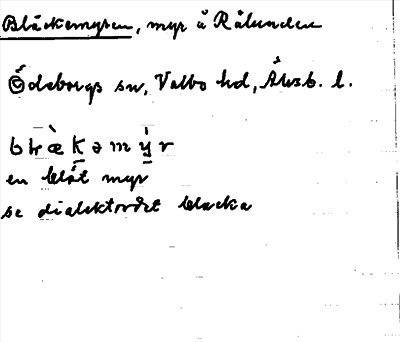 Bläckemyren, myr å Rålunden
Ödeborgs sn, Valbo hd, Älvsb. l.
en blöt myr
se dialektordet blacka